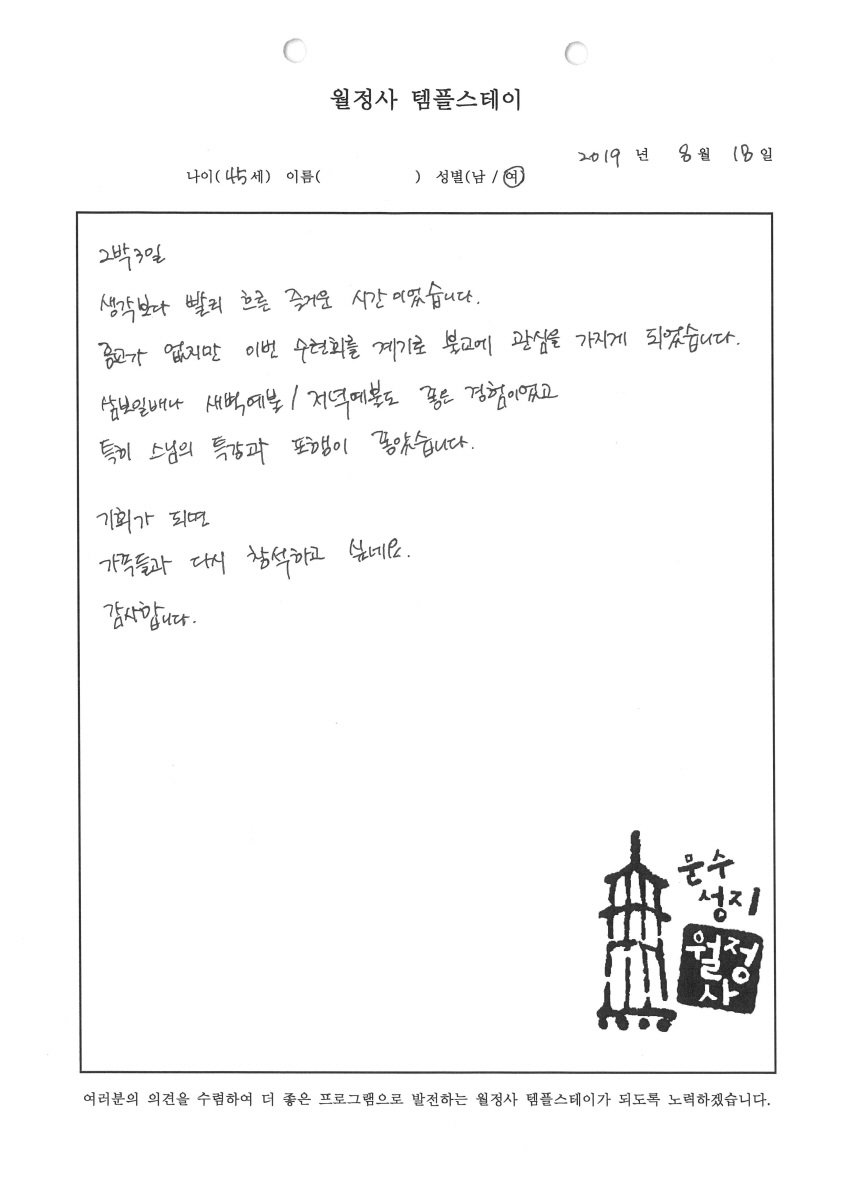 월정사 템플스테이
2019 년 8월 18일
나이(45세) 이름( ) 성별(남 / 여)
2박3일
생각보다 빨리 흐른 즐거운 시간이었습니다.
종교가 없지만 이번 수련회를 계기로 불교에 관심을 가지게 되었습니다.
삼보일배나 새벽예불 / 저녁예불도 좋은 경험이었고
특히 스님의 특강과 포행이 좋았습니다.
기회가 되면
가족들과 다시 참석하고 싶네요.
감사합니다.
문수
성지
월정
사
여러분의 의견을 수렴하여 더 좋은 프로그램으로 발전하는 월정사 템플스테이가 되도록 노력하겠습니다.